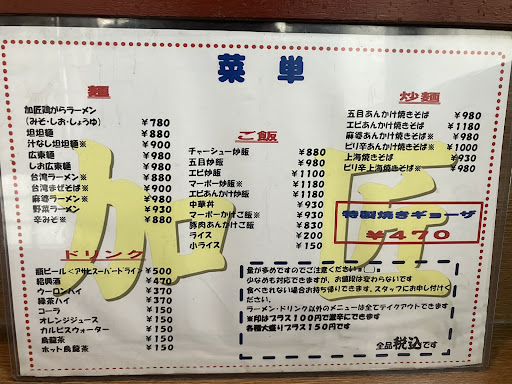 菜単
麺
加匠鶏がらラーメン
(みそ・しお・しょうゆ) ¥780
坦坦麺 ¥880
汁なし坦坦麺※ ¥900
広東麺 ¥980
しお広東麺 ¥980
台湾ラーメン※ ¥880
台湾まぜそば※ ¥900
麻婆ラーメン※ ¥980
野菜ラーメン ¥930
辛みそ※ ¥880
ドリンク
瓶ビール<アサヒスーパードライ> ¥500
紹興酒 ¥470
ウーロンハイ ¥370
緑茶ハイ ¥370
コーラ ¥150
オレンジジュース ¥150
カルピスウォーター ¥150
烏龍茶 ¥150
ホット烏龍茶 ¥150
ご飯
チャーシュー炒飯 ¥880
五目炒飯 ¥980
エビ炒飯 ¥1100
マーボー炒飯※ ¥1180
エビあんかけ炒飯 ¥1180
中華丼 ¥930
マーボーかけご飯※ ¥930
豚肉あんかけご飯 ¥830
ライス ¥200
小ライス ¥150
炒麺
五目あんかけ焼きそば ¥980
エビあんかけ焼きそば ¥1180
麻婆あんかけ焼きそば※ ¥980
ピリ辛あんかけ焼きそば※ ¥1000
上海焼きそば ¥930
ピリ辛上海焼きそば※ ¥980
特製焼きギョーザ
¥470
量が多めですのでご注意ください
少なめも対応できますが、お値段は変わらないです
食べきれない場合お持ち帰りできます、スタッフにお申し付けください。
ラーメン・ドリンク以外のメニューは全てテイクアウトできます
※印はプラス100円で激辛にできます
各種大盛りプラス150円です
全品税込です
加匠